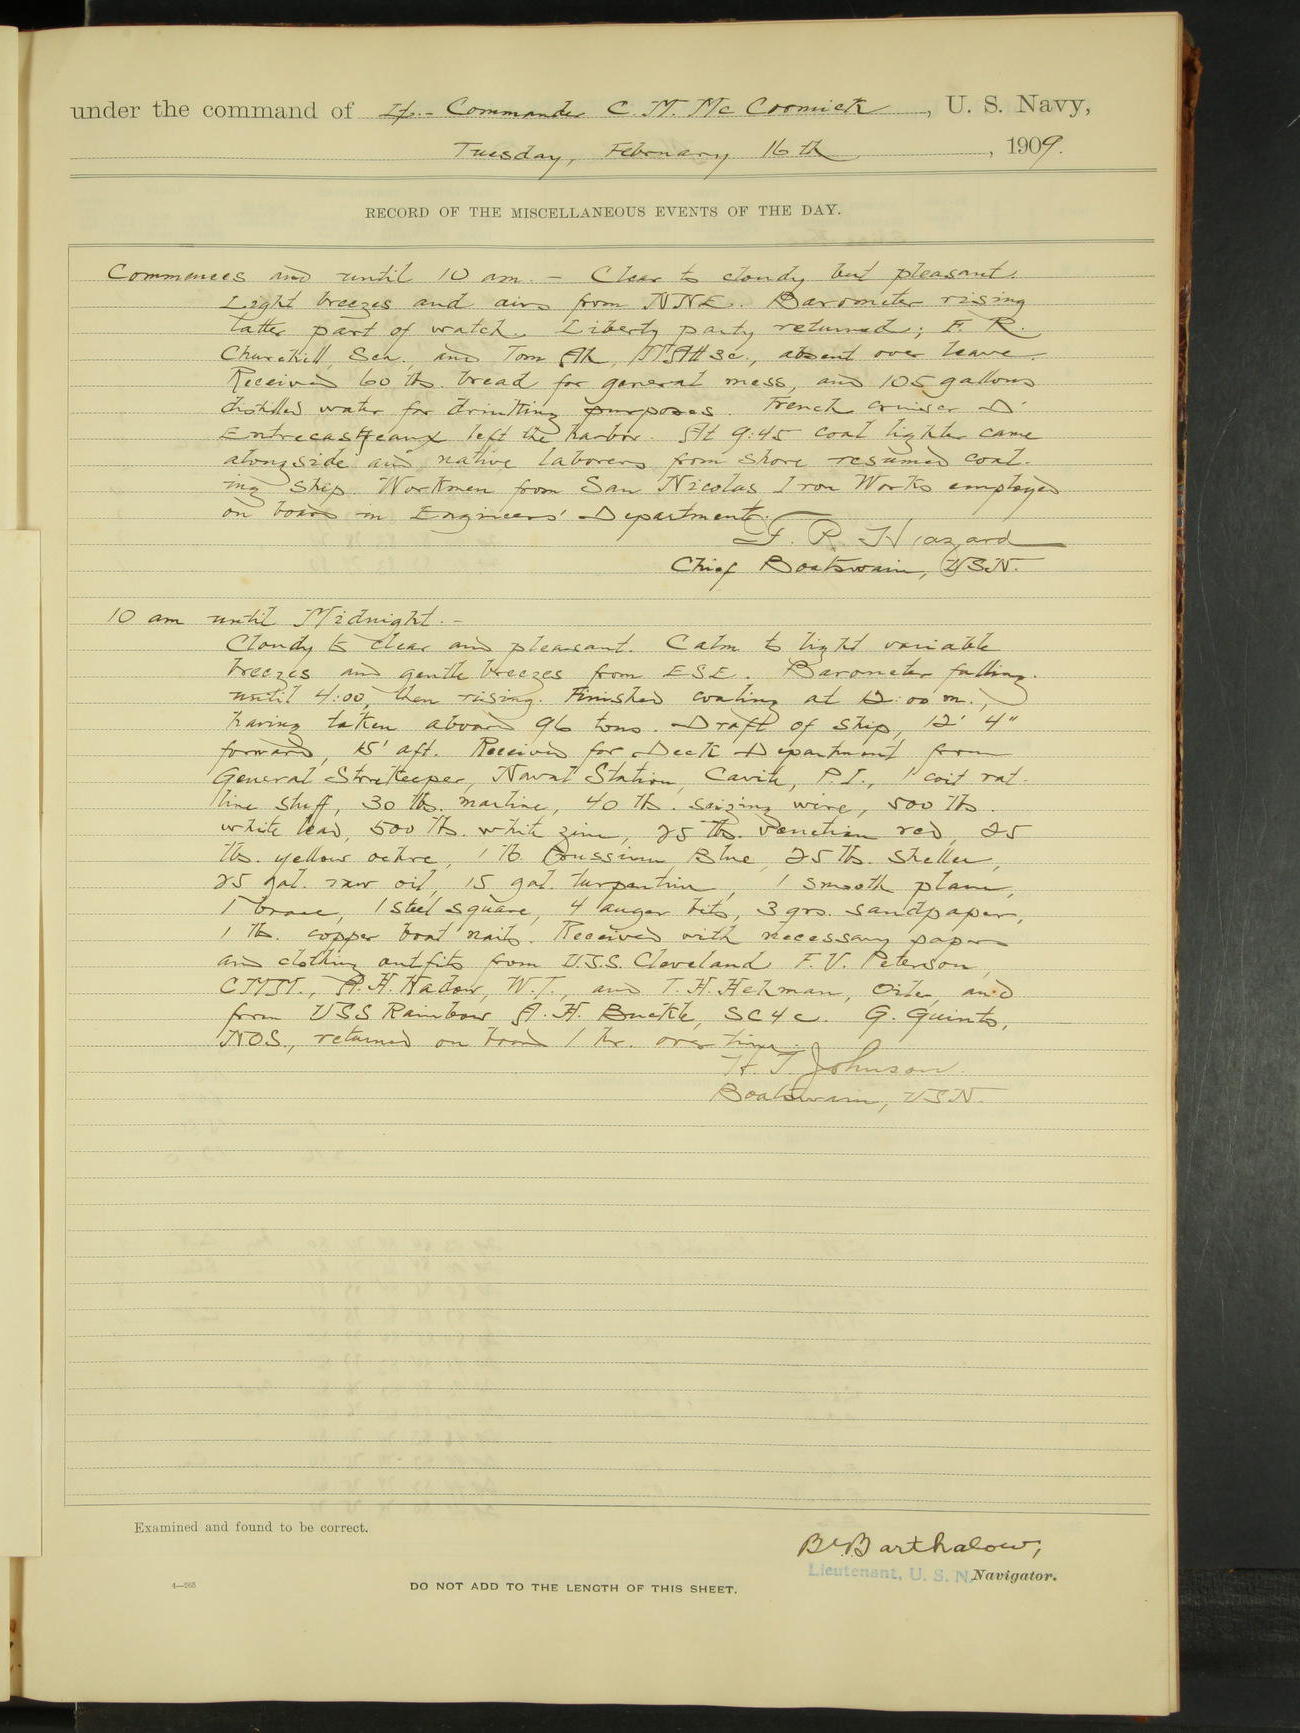 under the command of Lt.- Commander C. M. McCormick, U. S. Navy,
Tuesday, February 16th, 1909.
RECORD OF THE MISCELLANEOUS EVENTS OF THE DAY.
Commences and until 10 am. - Clear to cloudy but pleasant.
Light breezes and airs from NNE. Barometer rising
latter part of watch. Liberty party returned; F. R.
Churchill, Sea., and Tom Ah, absent over leave.
Received 60 lbs. bread for general mess, and 105 gallons
distilled water for drinking purposes. French cruiser D'
Entrecasteaux left the harbor. At 9:45 coal lighter came
alongside and native laborers from shore resumed coal-
ing ship. Workmen from San Nicolas Iron Works employed
on board in Engineers' Department.
F. R. Hazard
Chief Boatswain, USN.
10 am until Midnight. -
Cloudy to clear and pleasant. Calm to light variable
breezes and gentle breezes from ESE. Barometer falling
until 4:00, then rising. Finished coaling at 12:00 m.,
having taken aboard 96 tons. Draft of ship, 12' 4"
forward, 15' aft. Received for Deck Department from
General Storekeeper, Naval Station, Cavite, P.I., 1 coil rat-
line stuff, 30 lbs. marline, 40 lb. seizing wire, 500 lbs.
white lead, 500 lbs. white zinc, 25 lbs. venetian red, 25
lbs. yellow ochre, 1 lb. Prussian Blue, 25 lbs. shellac,
25 gal. raw oil, 15 gal. turpentine, 1 smooth plane,
1 brace, 1 steel square, 4 auger bits, 3 qrs. sandpaper,
1 lb. copper boat nails. Received with necessary papers
and clothing outfits from U.S.S. Cleveland F. V. Peterson,
CMM., A. H. Hadow, W.T., and T. H. Hekman, Oiler, and
from USS Rainbow A. H. Buckle, SC4c. G. Quinto,
NOS., returned on board 1 hr. over time.
H. T. Johnson
Boatswain, USN.
Examined and found to be correct.
B Barthalow,
Lieutenant, U. S. N. Navigator.
4—265
DO NOT ADD TO THE LENGTH OF THIS SHEET.